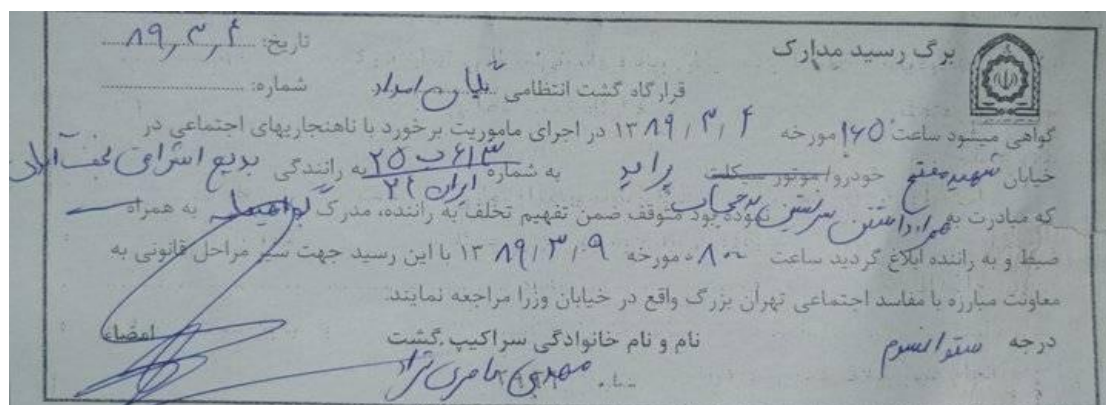 برگ رسید مدارک
تاریخ: ۸۹٫۳٫۴
قرارگاه گشت انتظامی امداد شماره:
گواهی میشود ساعت مورخه ۴ / ۳ / ۱۳۸۹ در اجرای ماموریت برخورد با ناهنجاریهای اجتماعی در
خیابان شهید مفتح خودرو/موتور سیکلت پراید به شماره ۶۱۳ ب ۲۵ ایران ۲۱ به رانندگی بدیع اشراقی نجف آبادی
که مبادرت به همراه داشتن سرنشین بدحجاب نموده بود متوقف ضمن تفهیم تخلف به راننده، مدرک گواهینامه به همراه
ضبط و به راننده ابلاغ گردید ساعت ۰۸۰۰ مورخه ۰۹ / ۳ / ۱۳۸۹ با این رسید جهت سیر مراحل قانونی به
معاونت مبارزه با مفاسد اجتماعی تهران بزرگ واقع در خیابان وزرا مراجعه نمایند.
درجه ستوانسوم نام و نام خانوادگی سراکیپ گشت امضاء
مهدی عامری نژاد